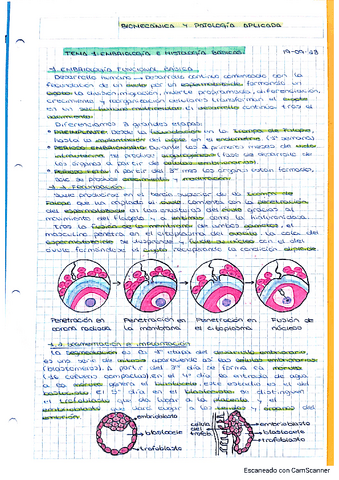 BIOMECÁNICA Y PATOLOGÍA APLICADA
TEMA 1. EMBRIOLOGÍA E HISTOLOGÍA BÁSICAS
1. EMBRIOLOGÍA FUNCIONAL BÁSICA
Desarrollo humano → Desarrollo continuo comenzado con la
fecundación de un óvulo por un espermatozoide formando un
división, migración, muerte programada, diferenciación,
crecimiento y reorganización celulares transforman el
en un ser humano multicelular. El desarrollo continúa tras el
nacimiento.
Diferenciamos 3 grandes etapas:
desde la fecundación en la trompa de Falopio,
hasta la implantación del en el endometrio (1ª semana)
PERIODO EMBRIONARIO: durante los 2 primeros meses de vida
intrauterina se produce organogénesis (fase de desarrollo de
los órganos a partir de células embrionarias).
PERIODO FETAL: A partir del 3º mes los órganos están formados,
solo se produce crecimiento y maduración.
1.1. FECUNDACIÓN
Suele producirse en el tercio superior de la trompa de
Falopio que ha captado el óvulo. Comienza con la penetración
del espermatozoide en las envolturas del óvulo gracias al
movimiento del flagelo y a enzimas como la hialuronidasa.
Tras la fusión de la membrana de ambos gametos, el
masculino penetra en el citoplasma del óvulo. La cola del
espermatozoide se desprende y funde su núcleo con el del
óvulo formándose el recuperando la condición diploide.
Penetración en corona radiada
Penetración en la membrana
Penetración en el citoplasma
Fusión de núcleos
1.2. SEGMENTACIÓN E IMPLANTACIÓN
La segmentación es la 1ª etapa del desarrollo embrionario,
es una serie de mitosis apareciendo así las células embrionarias
(blastómeros). A partir del 3º día se forma la mórula
(16 células compactas). En el 4º día la entrada de agua
a la mórula genera el blastocele, este estadio es el del
blastocisto. El 5º día en el blastocisto se distinguen
el trofoblasto que da lugar a la placenta y el
embrioblasto que dará lugar a los tejidos y órganos del
embrión.
embrioblasto
blastocele
trofoblasto
célula del
embrioblasto
blastocele
trofoblasto
Escaneado con CamScanner